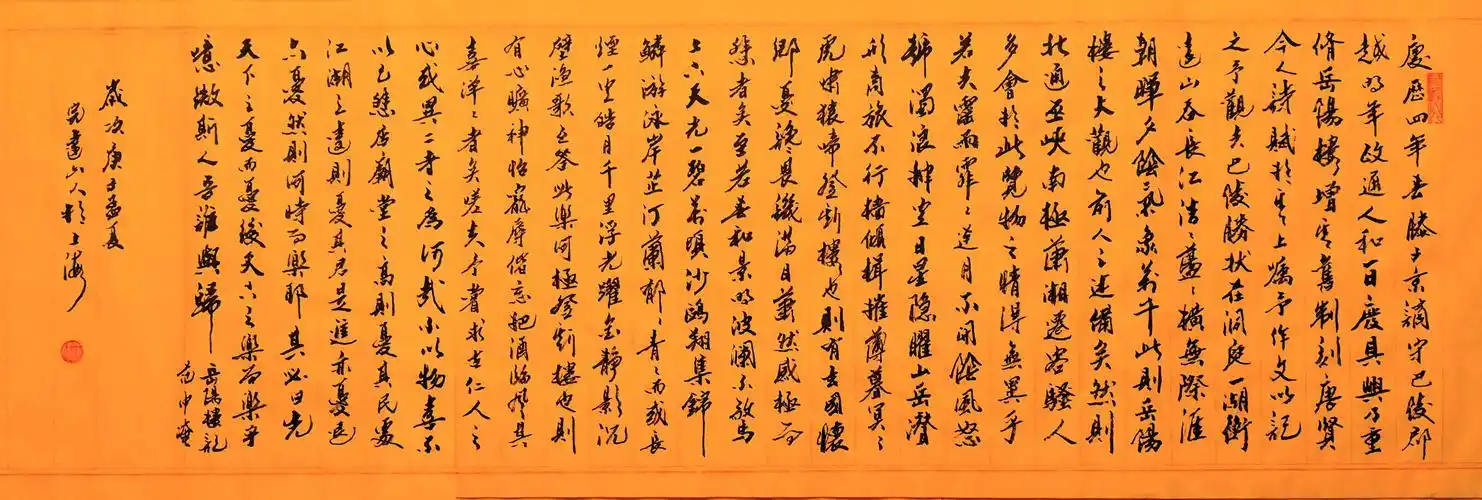 慶歷四年春滕子京謫守巴陵郡
越明年政通人和百廢具興乃重
脩岳陽樓增其舊制刻唐賢
今人詩賦於其上屬予作文以記
之予觀夫巴陵勝狀在洞庭一湖銜
遠山吞長江浩浩蕩蕩橫無際涯
朝暉夕陰氣象萬千此則岳陽
樓之大觀也前人之述備矣然則
北通巫峽南極瀟湘遷客騷人
多會於此覽物之情得無異乎
若夫霪雨霏霏連月不開陰風怒
號濁浪排空日星隱曜山岳潛
形商旅不行檣傾楫摧薄暮冥冥
虎嘯猿啼登斯樓也則有去國懷
鄉憂讒畏譏滿目蕭然感極而
悲者矣至若春和景明波瀾不驚
上下天光一碧萬頃沙鷗翔集錦
鱗游泳岸芷汀蘭郁郁青青而或長
煙一空皓月千里浮光躍金靜影沉
璧漁歌互答此樂何極登斯樓也則
有心曠神怡寵辱偕忘把酒臨風其
喜洋洋者矣嗟夫予嘗求古仁人之
心或異二者之為何哉不以物喜不
以己悲居廟堂之高則憂其民處
江湖之遠則憂其君是進亦憂退
亦憂然則何時而樂耶其必曰先
天下之憂而憂後天下之樂而樂乎
噫微斯人吾誰與歸
岳陽樓記
范仲淹
歲次庚子孟夏
山人於上海